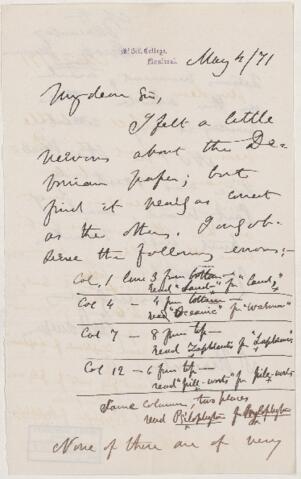 McGill College,
Montreal.
May 4/71
My dear Sir,
I felt a little
nervous about the De-
vonian paper; but
find it really as correct
as the others. I only ob-
serve the following errors:-
Col. 1 line 3 from bottom -
read "Land" for "Sand,"
Col 4 - 4 from bottom -
read "Oceanic" for
Col 7 - 8 from top -
read for
Col 12 - 6 from top -
read "pill-worts" for
Same column, two places
read Psilophyton for
None of these are of very